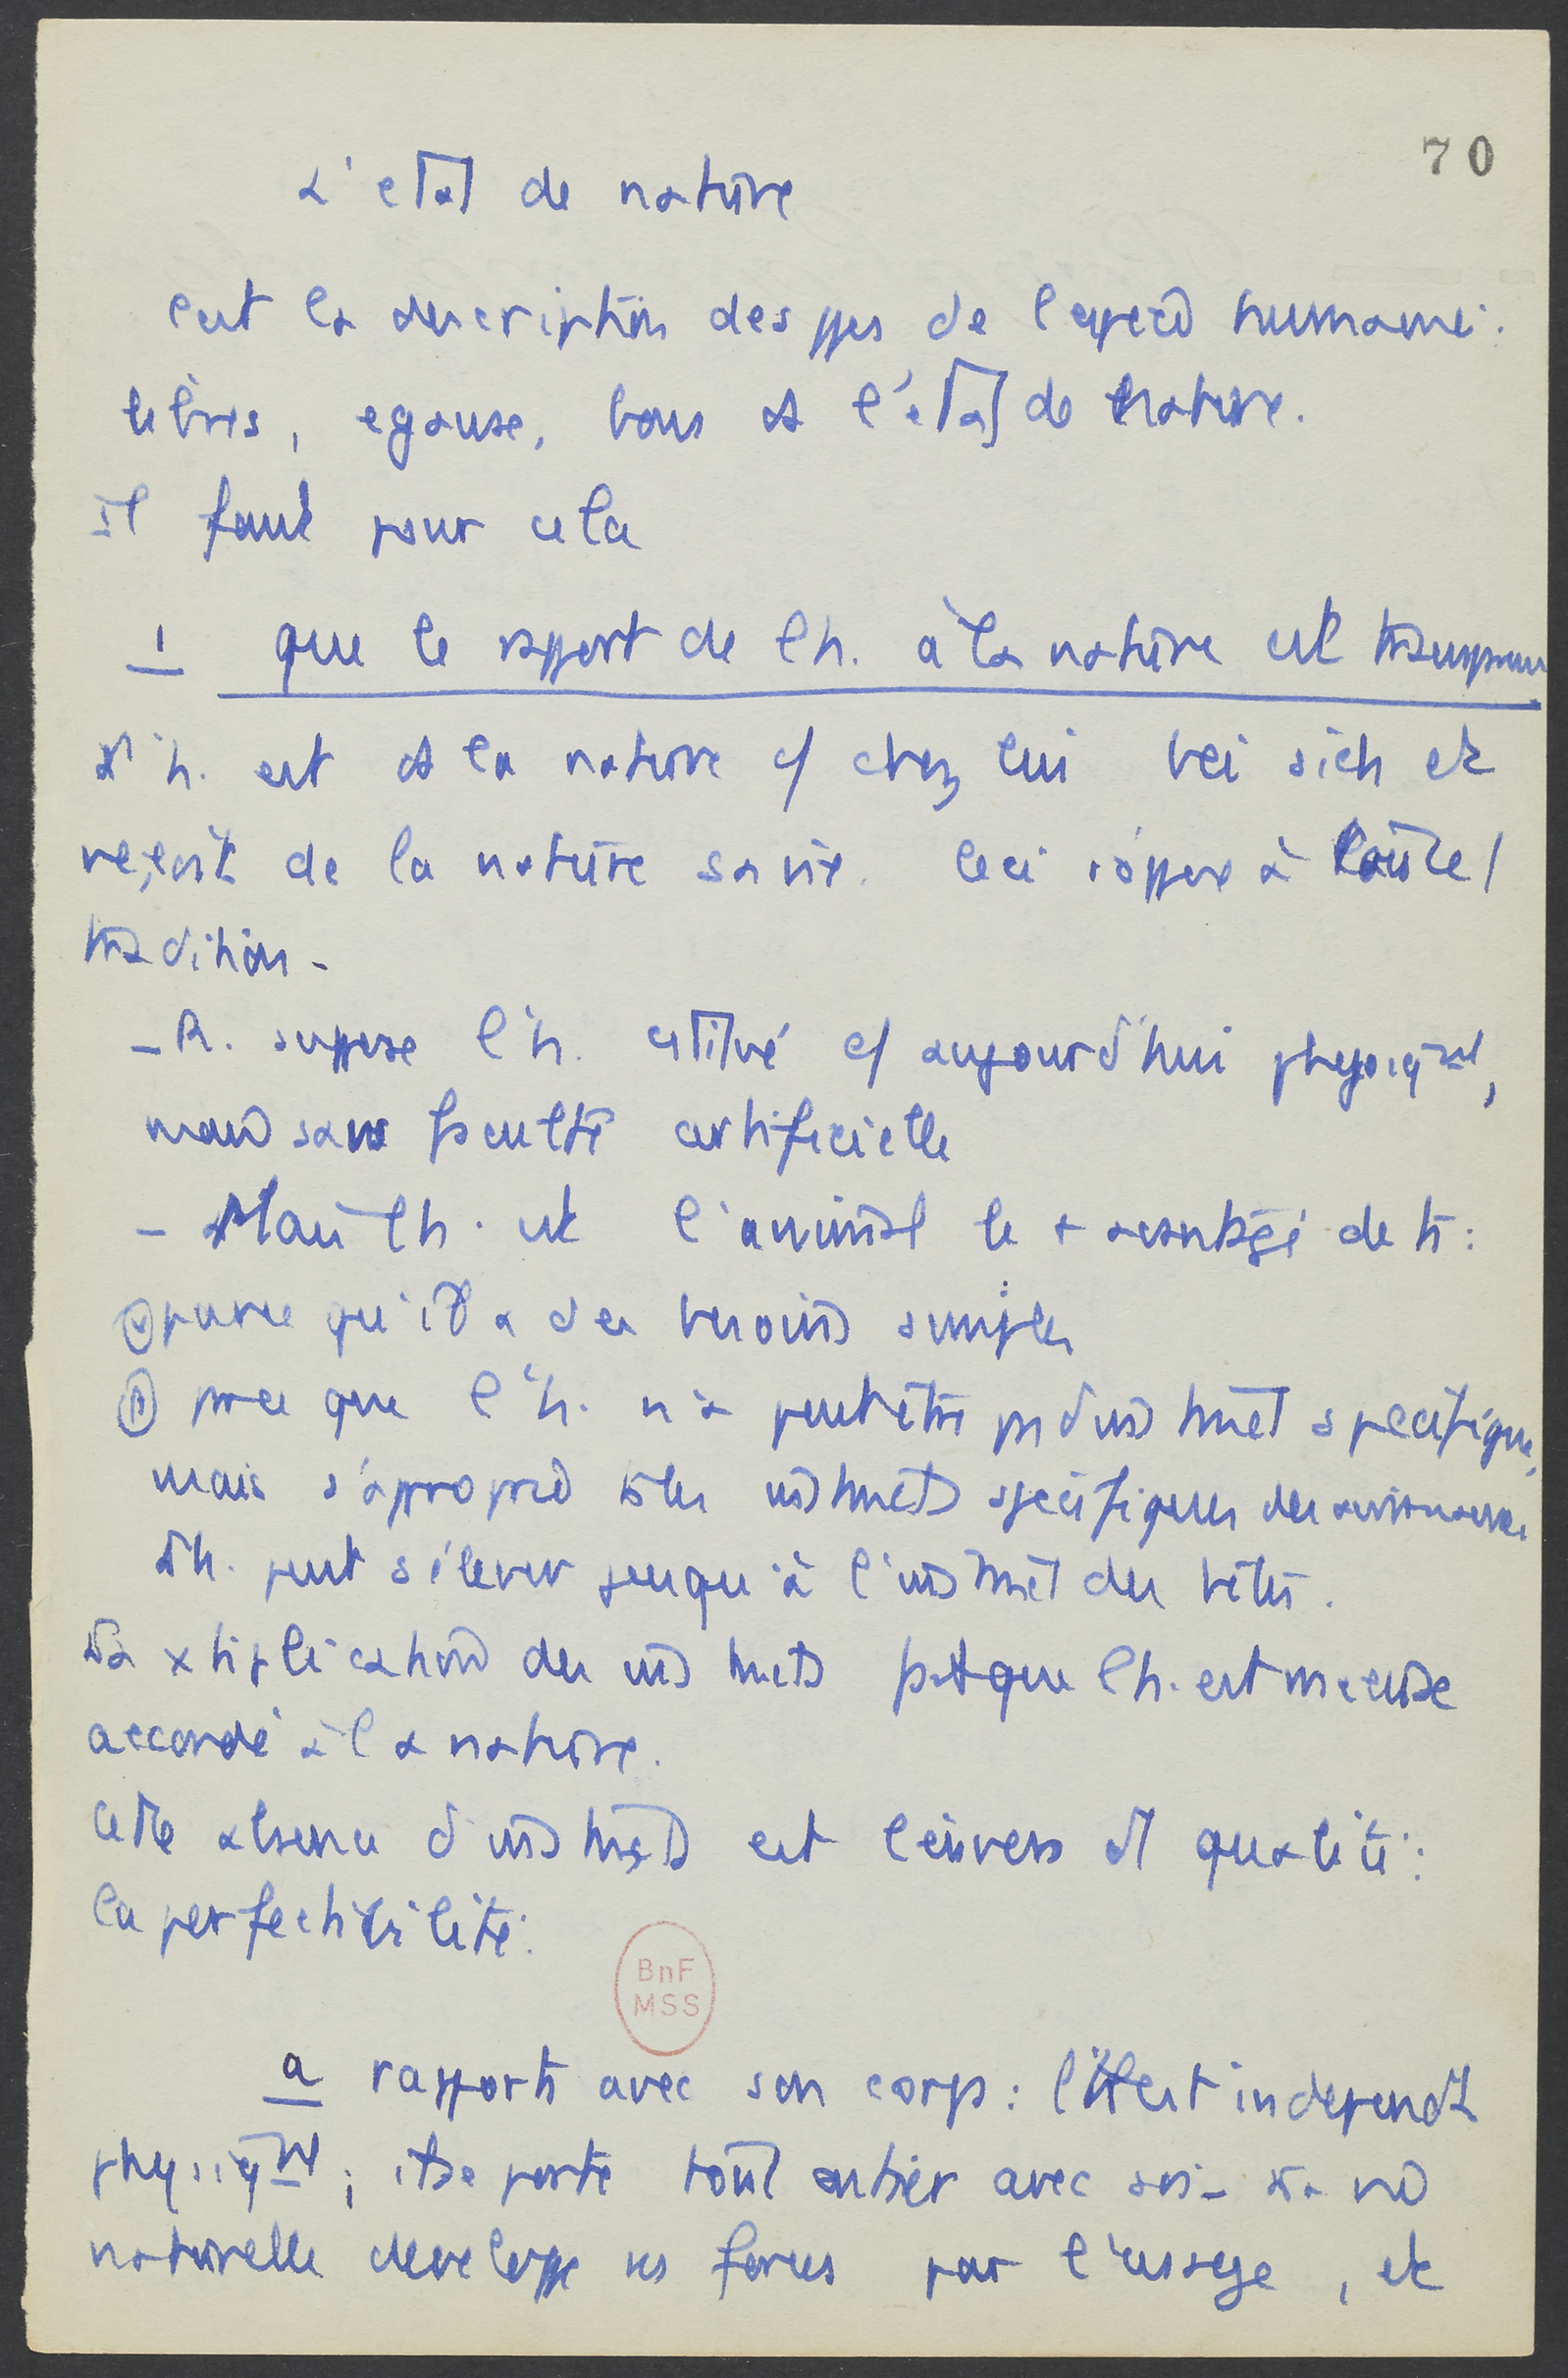 70
L'état de nature
C'est la description des ppes de l'espèce humaine :
libres, égaux, bons ds l'état de nature.
Il faut pour cela
1 que le rapport de l'h. à la nature est
L'h. est ds la nature c/ chez lui bei sich et
reçoit de la nature sa vie. Ceci s'oppose à toute
tradition -
- R. suppose l'h. c/ aujourd'hui physiqt,
mais sans faculté artificielle
- Mais l'h. est l'animal le + avantagé de ts :
parce qu'il a des besoins simples
parce que l'h. n'a peut être pas d'instinct spécifique,
mais s'approprie ts les instincts spécifiques des
L'h. peut s'élever jusqu'à l'instinct des bêtes.
La xtiplication des instincts fait que l'h. est mieux
accordé à la nature.
Cette absence d'instincts est l'envers d'1 qualité :
la perfectibilité :
BnF
MSS
a rapports avec son corps : l'H est independt
physiqt ; il se porte tout entier avec soi - La vie
naturelle développe ses forces par l'usage, et